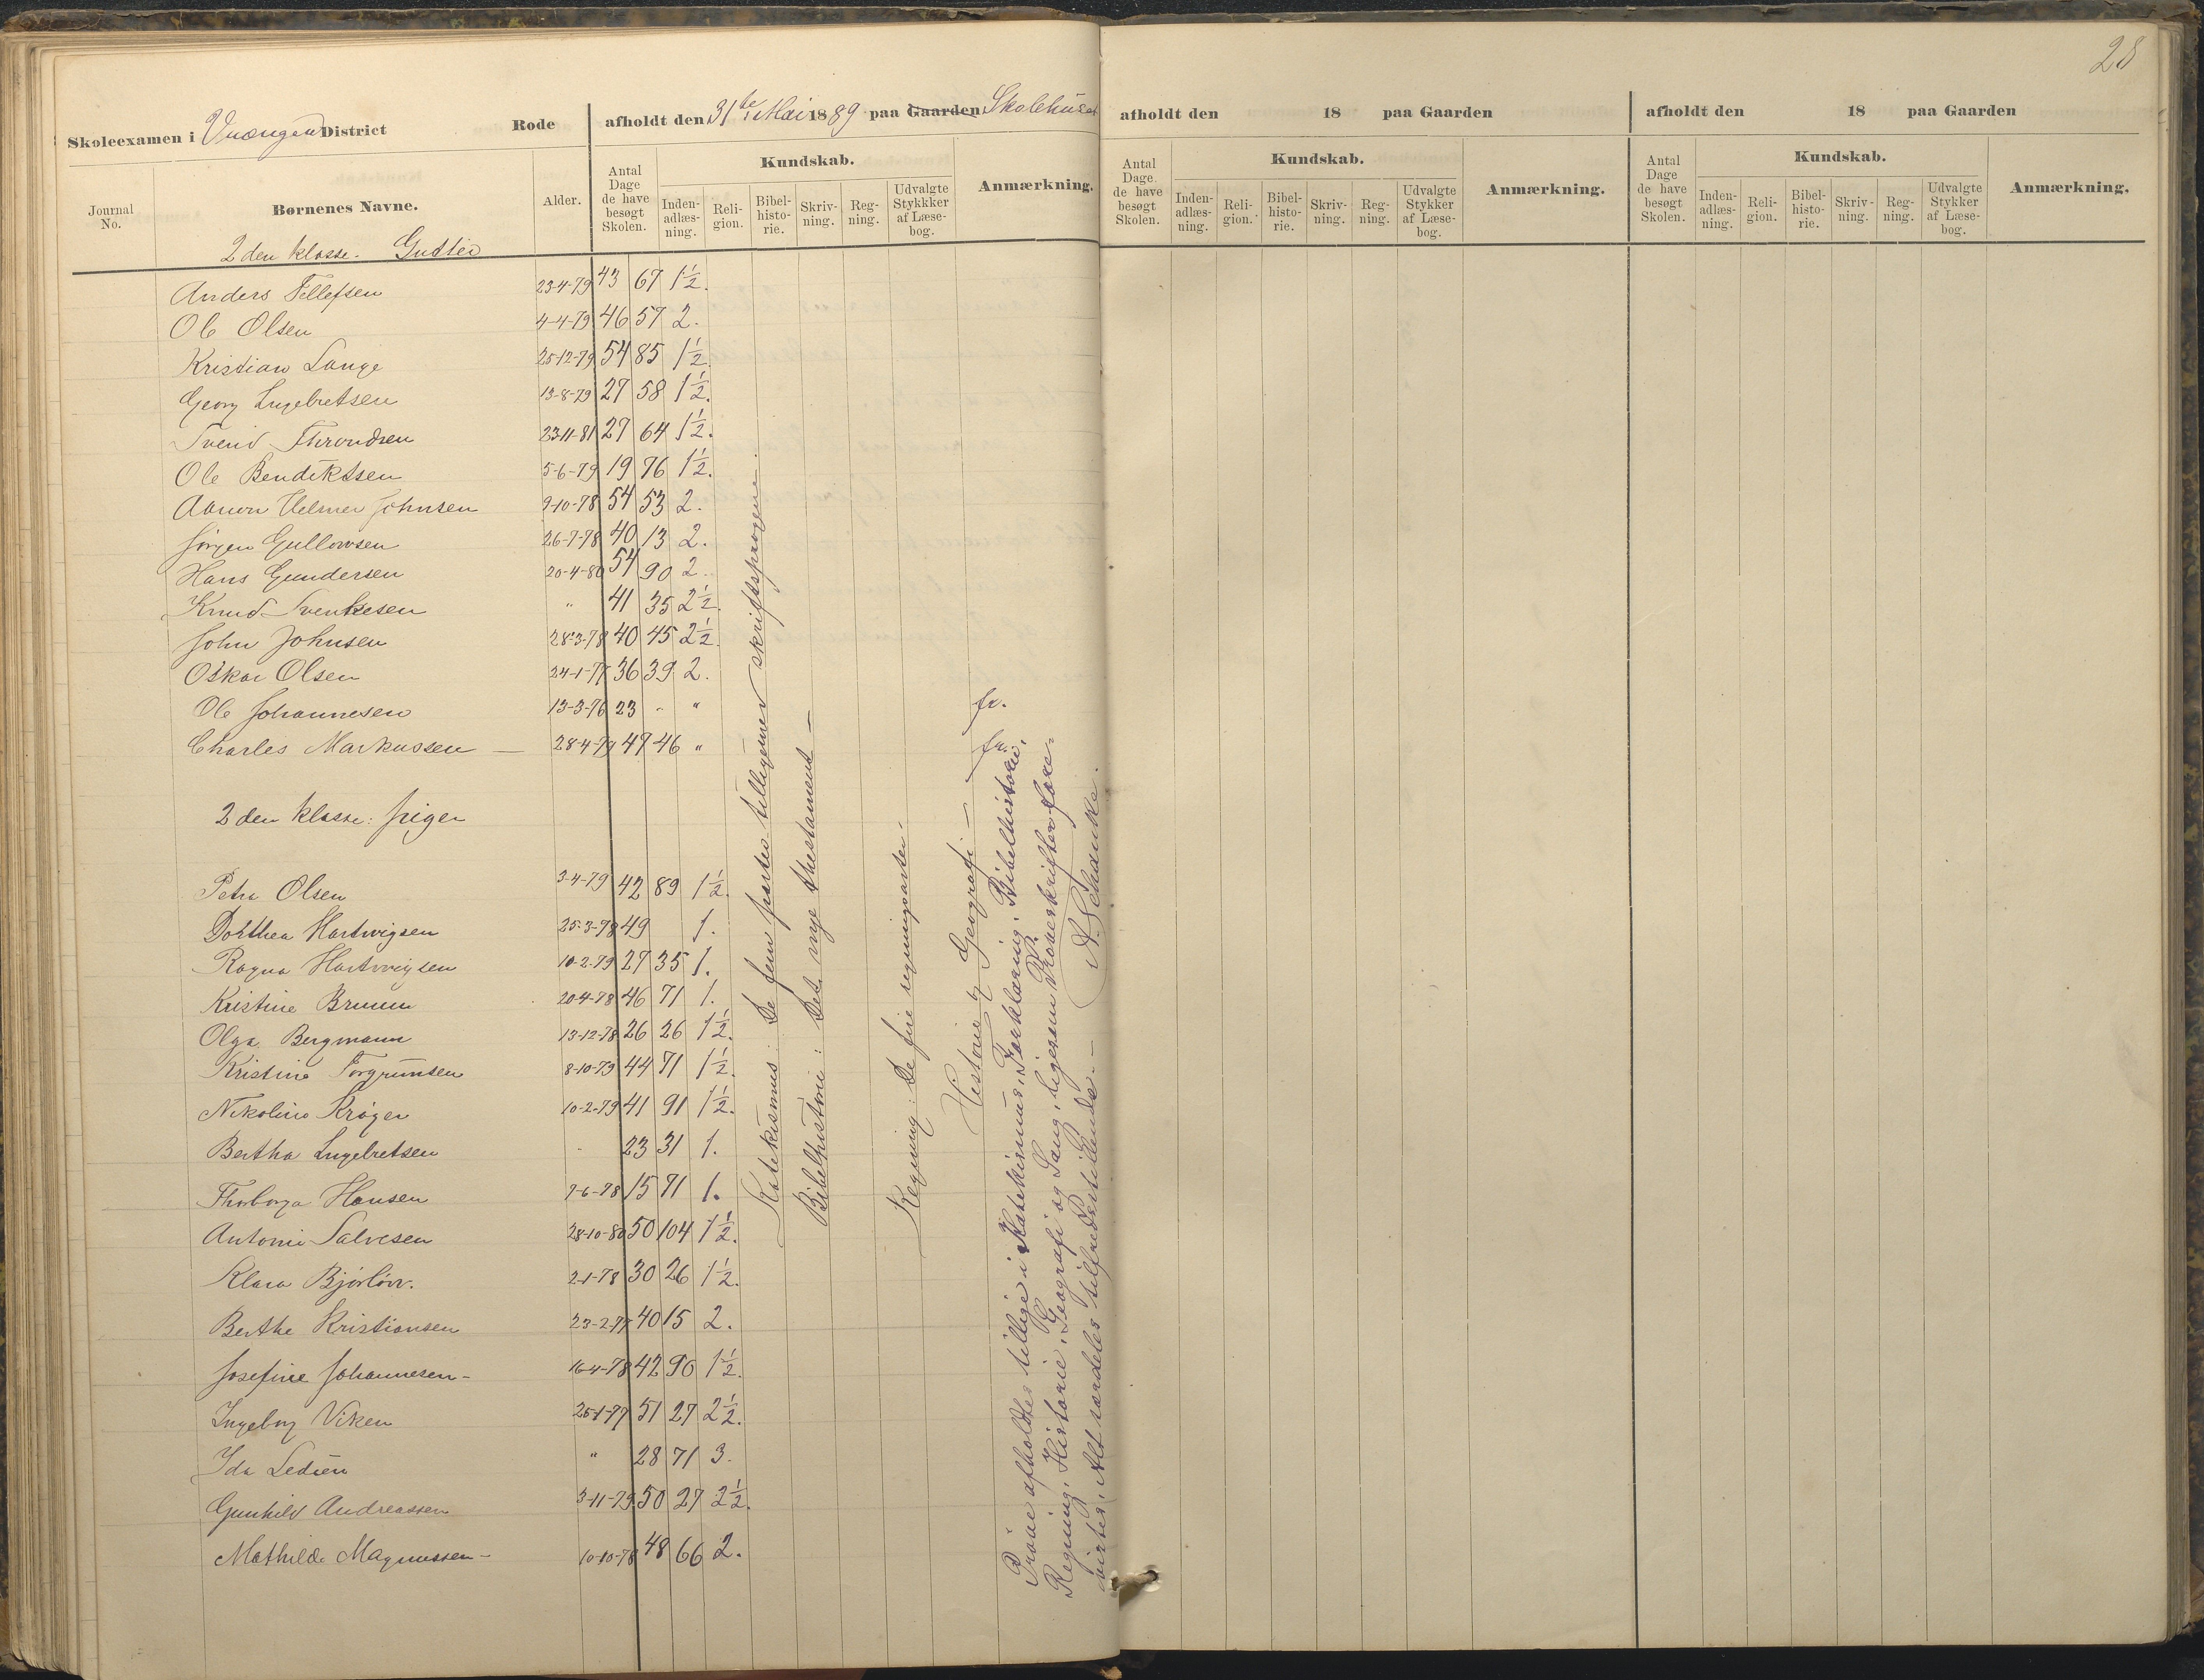 28
Skoleexamen i Vrængen District Rode afholdt den 31te Mai 1889 paa Gaarden Skolehuset
afholdt den 18 paa Gaarden
afholdt den 18 paa Gaarden
Journal No. Børnenes Navne. Alder. Antal Dage de have besøgt Skolen. Kundskab. Inden-adlæs-ning. Reli-gion. Bibel-histo-rie. Skriv-ning. Reg-ning. Udvalgte Stykkker af Læse-bog. Anmærkning.
Antal Dage. de have besøgt Skolen. Kundskab. Inden-adlæs-ning. Reli-gion. Bibel-histo-rie. Skriv-ning. Reg-ning. Udvalgte Stykker af Læse-bog. Anmærkning.
Antal Dage de have besøgt Skolen. Kundskab. Inden-adlæs-ning. Reli-gion. Bibel-histo-rie. Skriv-ning. Reg-ning. Udvalgte Stykker af Læse-bog. Anmærkning.
2den klasse. Gutter
Anders Tellefsen 23-4-79 43 67 1½.
Ole Olsen 4-4-79 46 57 2.
Kristian Lange 25-12-79 54 85 1½.
Georg Ingebretsen 13-8-79 27 58 1½.
Svend Throndsen 23-11-81 27 64 1½.
Ole Bendiktsen 5-6-79 19 76 1½.
Aanon Helmer Johnsen 9-10-78 54 53 2.
Jörgen Gullowsen 26-7-78 40 13 2.
Hans Gundersen 20-4-80 54 90 2.
Knud Svenksen " 41 35 2½.
John Johnsen 28-3-78 40 45 2½.
Oskar Olsen 24-1-77 36 39 2.
Ole Johannesen 13-3-76 23 - " fr.
Charles Markussen — 28-4-79 47 46 " fr.
2den klasse: piger
Petra Olsen 3-4-79 42 89 1½.
Dorthea Hartwigsen 25-3-78 49 1.
Ragna Hartvigsen 10-2-79 27 35 1.
Kristine Bruun 20-4-78 46 71 1.
Olga Bergmann 13-12-78 26 26 1½.
Kristine Torgrimsen 8-10-79 44 71 1½.
Nikoline Krøger 10-2-79 41 91 1½.
Bertha Ingebretsen - 23 31 1.
Thorborga Hansen 7-6-78 15 71 1.
Antonie Salvesen 28-10-80 50 104 1½.
Klara Bjørløw. 2-1-78 30 26 1½.
Berthe Kristiansen 23-2-77 40 15 2.
Josefine Johannesen - 16-4-78 42 90 1½.
Ingeborg Viken 25-1-77 51 27 2½.
Ida Ledien " 28 71 3.
Gunhild Andreassen 3-11-79 50 27 2½.
Mathilde Magnussen - 10-10-78 48 66 2.
Katekismus: De fem parter tilligemed skriftsprogene.
Bibelhistorie: Det nye thestament —
Regning: De fire regningsarter.
Historie & Geografi —
Prøve afholdtes tillige i Katekismus, Forklaring, Bibelhistorie,
Regning, Historie, Geografi og Sang, ligesom Prøveskrifter fore-
vistes, Alt særdeles tilfredsstillende. —
A. Schanke.